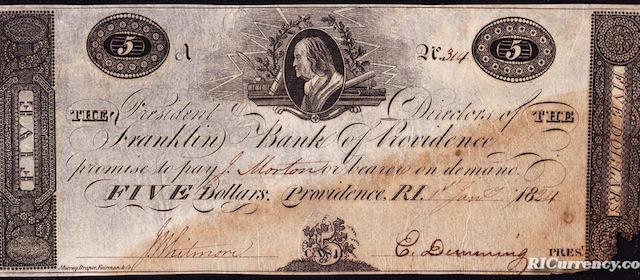 5 A No. 314 5
THE President & Directors of THE
Franklin Bank of Providence
promise to pay J. Morton or bearer on demand
FIVE Dollars. Providence, R.I. 1st Jany 1824
FIVE
FIVE DOLLARS
5
J. Whitmore C. Dumming PRES.
Murray, Draper, Fairman & Co.
RICurrency.co